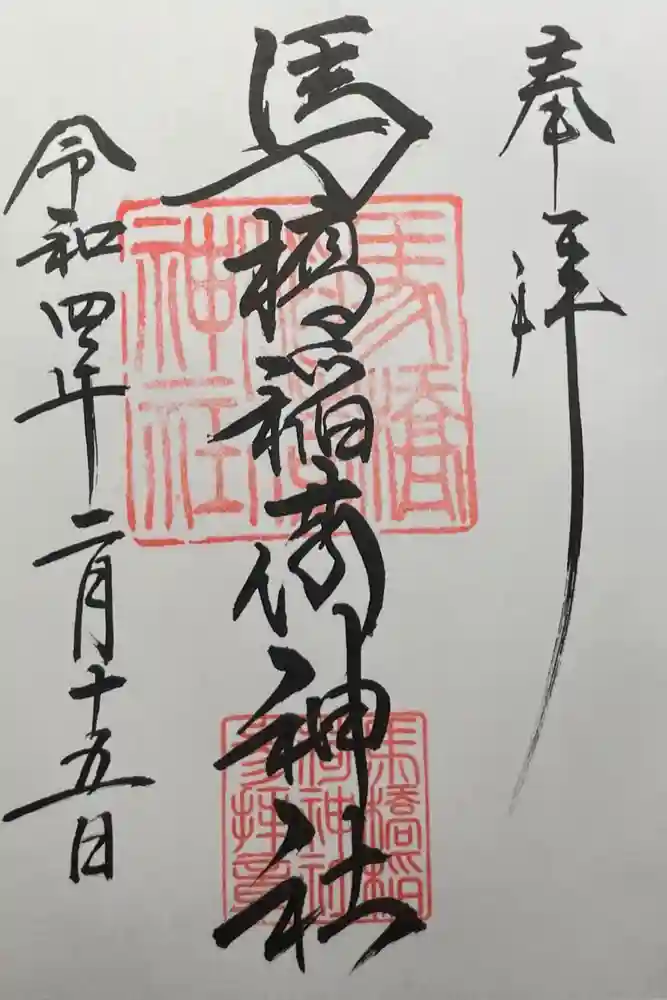 奉拝
馬橋稲荷神社
令和四年二月十五日
馬橋稲荷神社
馬橋稲荷神社参拝章